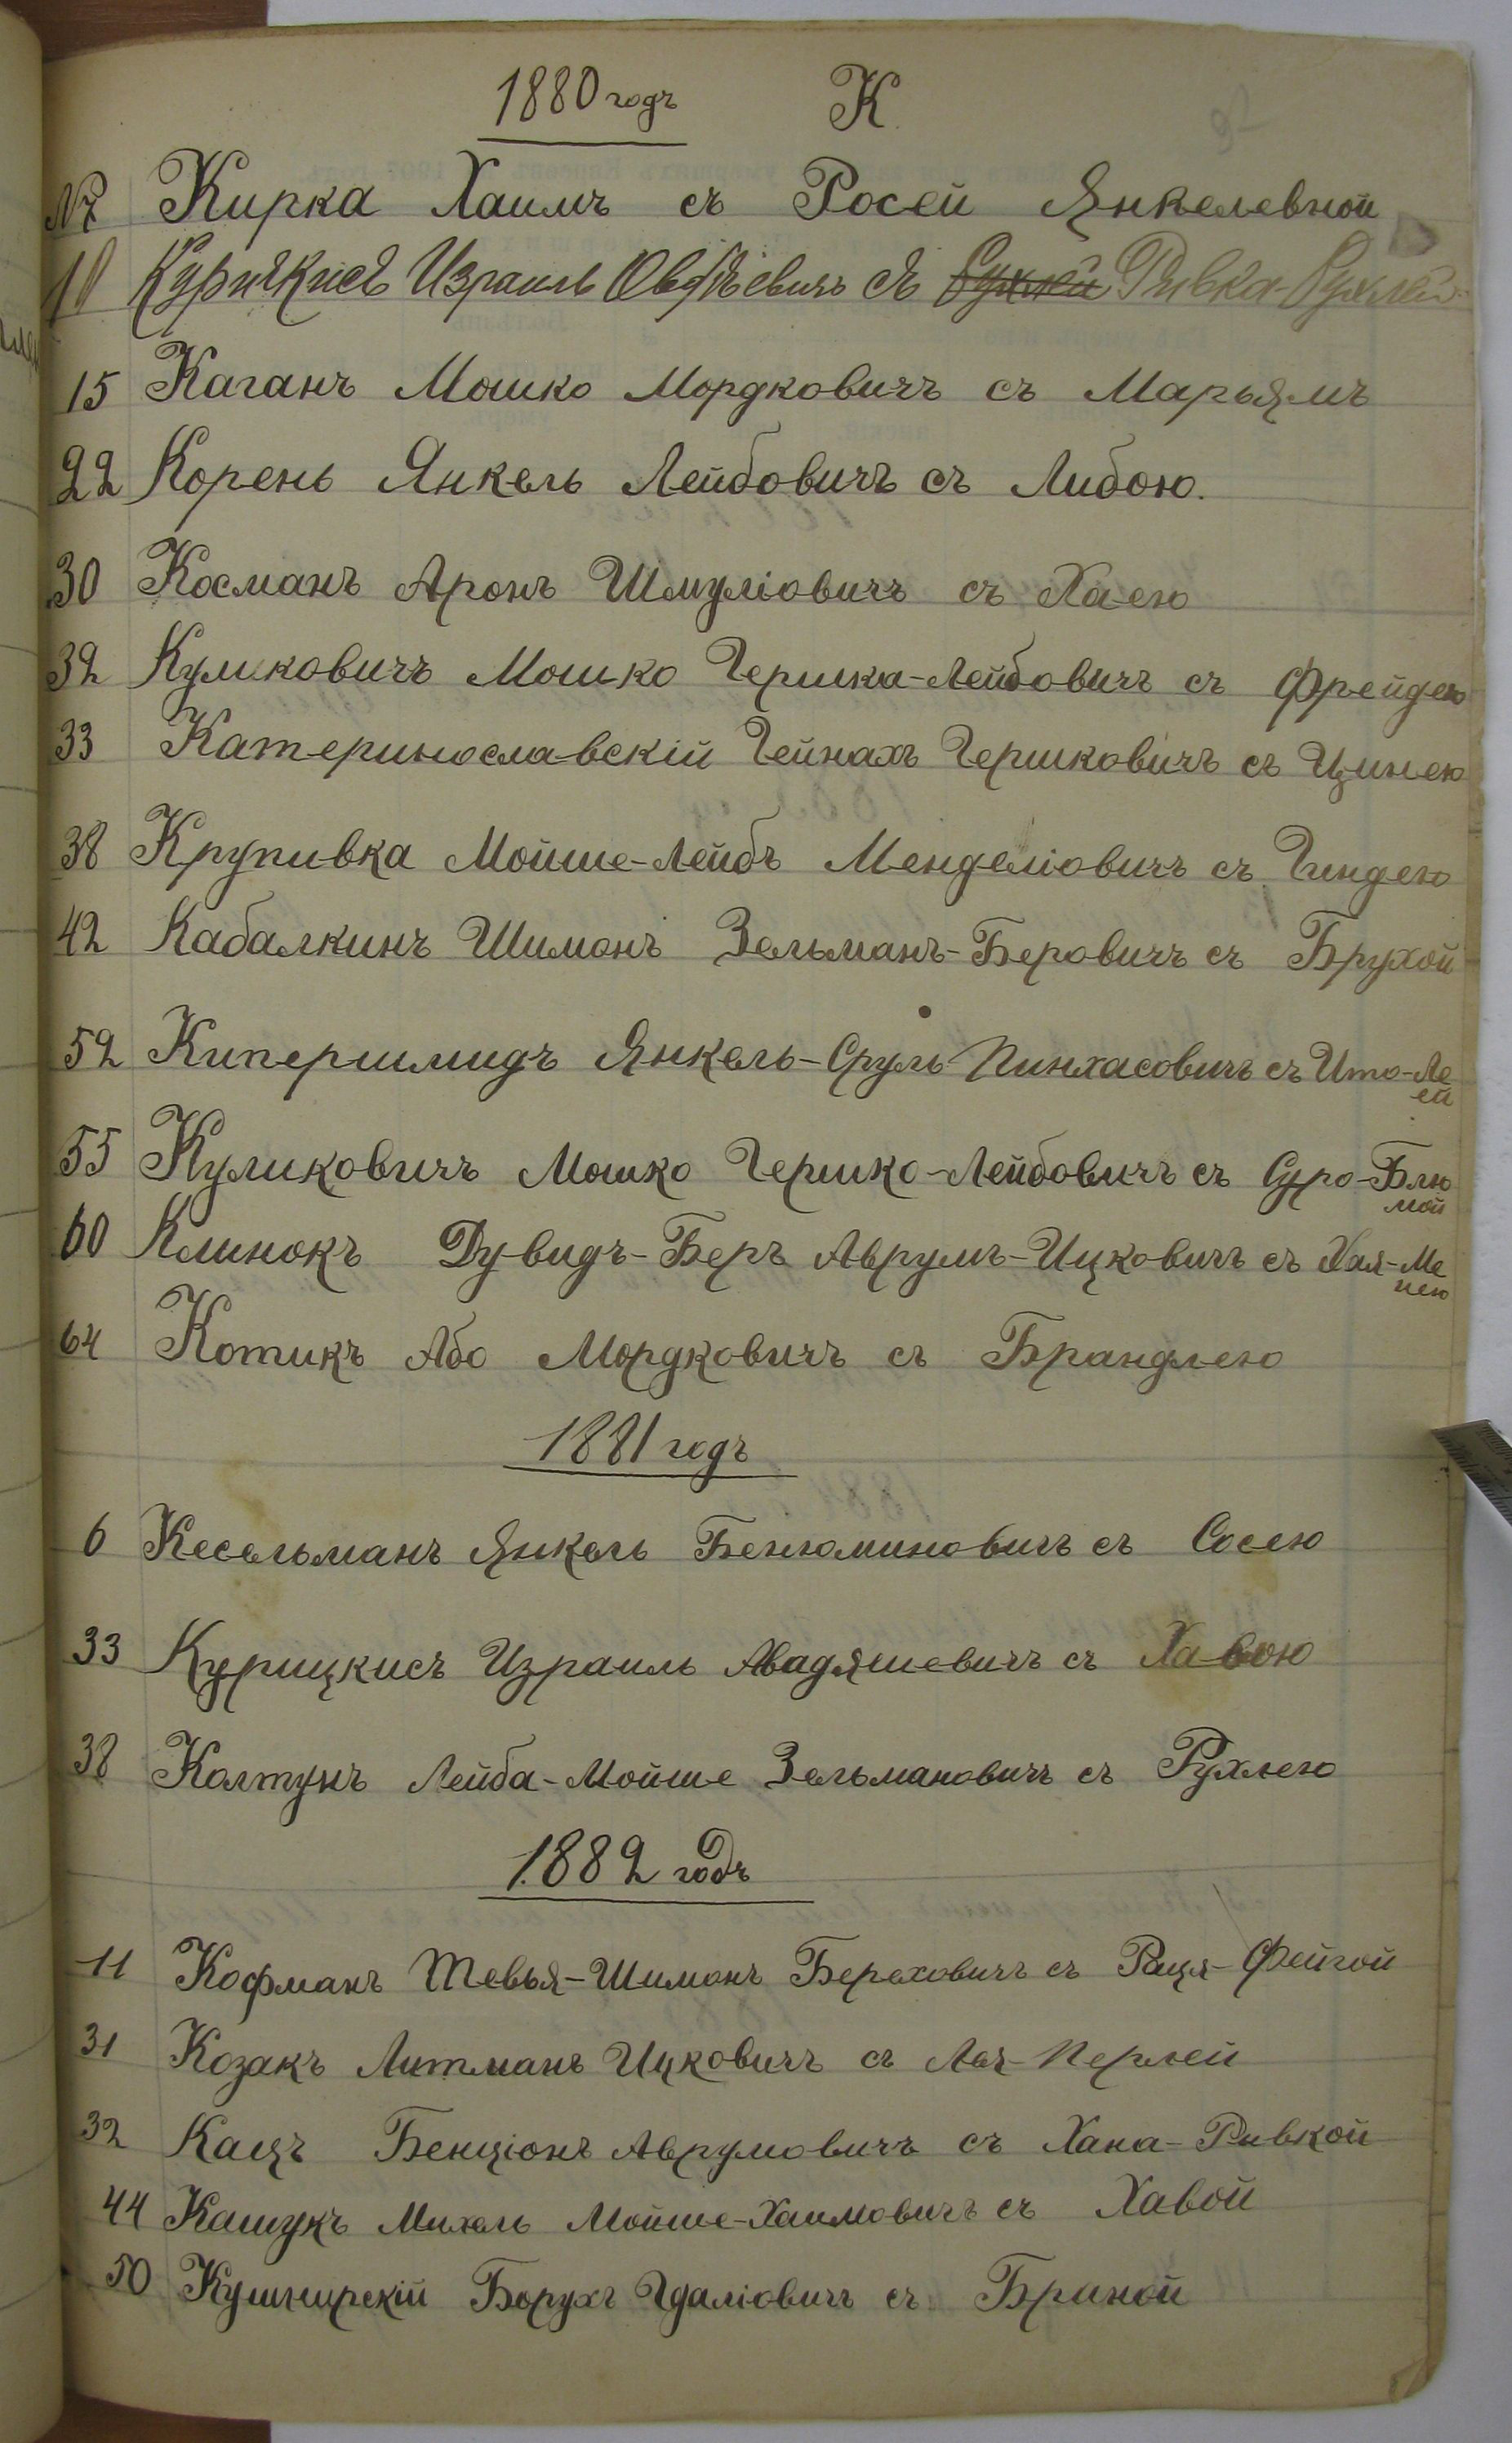 1880 годъ К
№7 Кирка Хаимъ съ Росей Янкелевной
10 Курицкисъ Израиль Овадьевичъ съ Рухлей Ривка-Рухлей
15 Каганъ Мошко Мордковичъ съ Марьямъ
22 Корень Янкель Лейбовичъ съ Либою.
30 Косманъ Аронъ Шмуліовичъ съ Хаею
32 Куликовичъ Мошко Гершка-Лейбовичъ съ Фрейдею
33 Катеринославскій Гейнахъ Гершковичъ съ Цинею
38 Крупивка Мойше-Лейбъ Менделіовичъ съ Гиндею
42 Кабалкинъ Шимонъ Зельманъ-Беровичъ съ Брухой
52 Кипершмидъ Янкель-Сруль Пинхасовичъ съ Ито-Ле
ей
55 Куликовичъ Мошко Гершко-Лейбовичъ съ Суро-Блю
мой
60 Клинокъ Дувидъ-Беръ Аврумъ-Ицковичъ съ Хая-Ме
нею
64 Котикъ Або Мордковичъ съ Брандлею
1881 годъ
6 Кесельманъ Янкель Бенюминовичъ съ Сосею
33 Курицкисъ Израиль Авадяшевичъ съ Хавою
38 Колтунъ Лейба-Мойше Зельмановичъ съ Рухлею
1882 годъ
11 Кофманъ Тевья-Шимонъ Бероховичъ съ Раця-Фейгой
31 Козакъ Литманъ Ицковичъ съ Лея-Перлей
32 Кацъ Бенціонъ Аврумовичъ съ Хана-Ривкой
44 Кашукъ Михель Мойше-Хаимовичъ съ Хавой
50 Кушнирскій Борухъ Гдаліовичъ съ Бриной